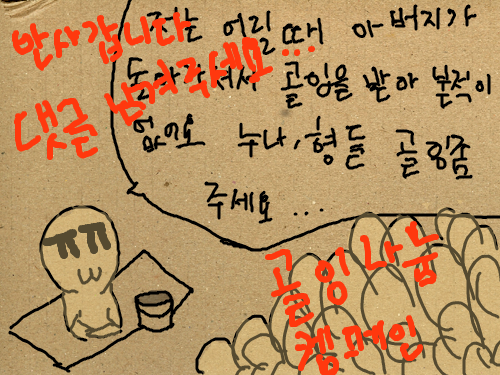 반사갑니다
댓글 남겨주세요...
저는 어릴때 아버지가
돌아가셔서 골잉을 받아 본적이
없으요 누나, 형들 골잉좀
주세요...
골잉나눔
켐페인